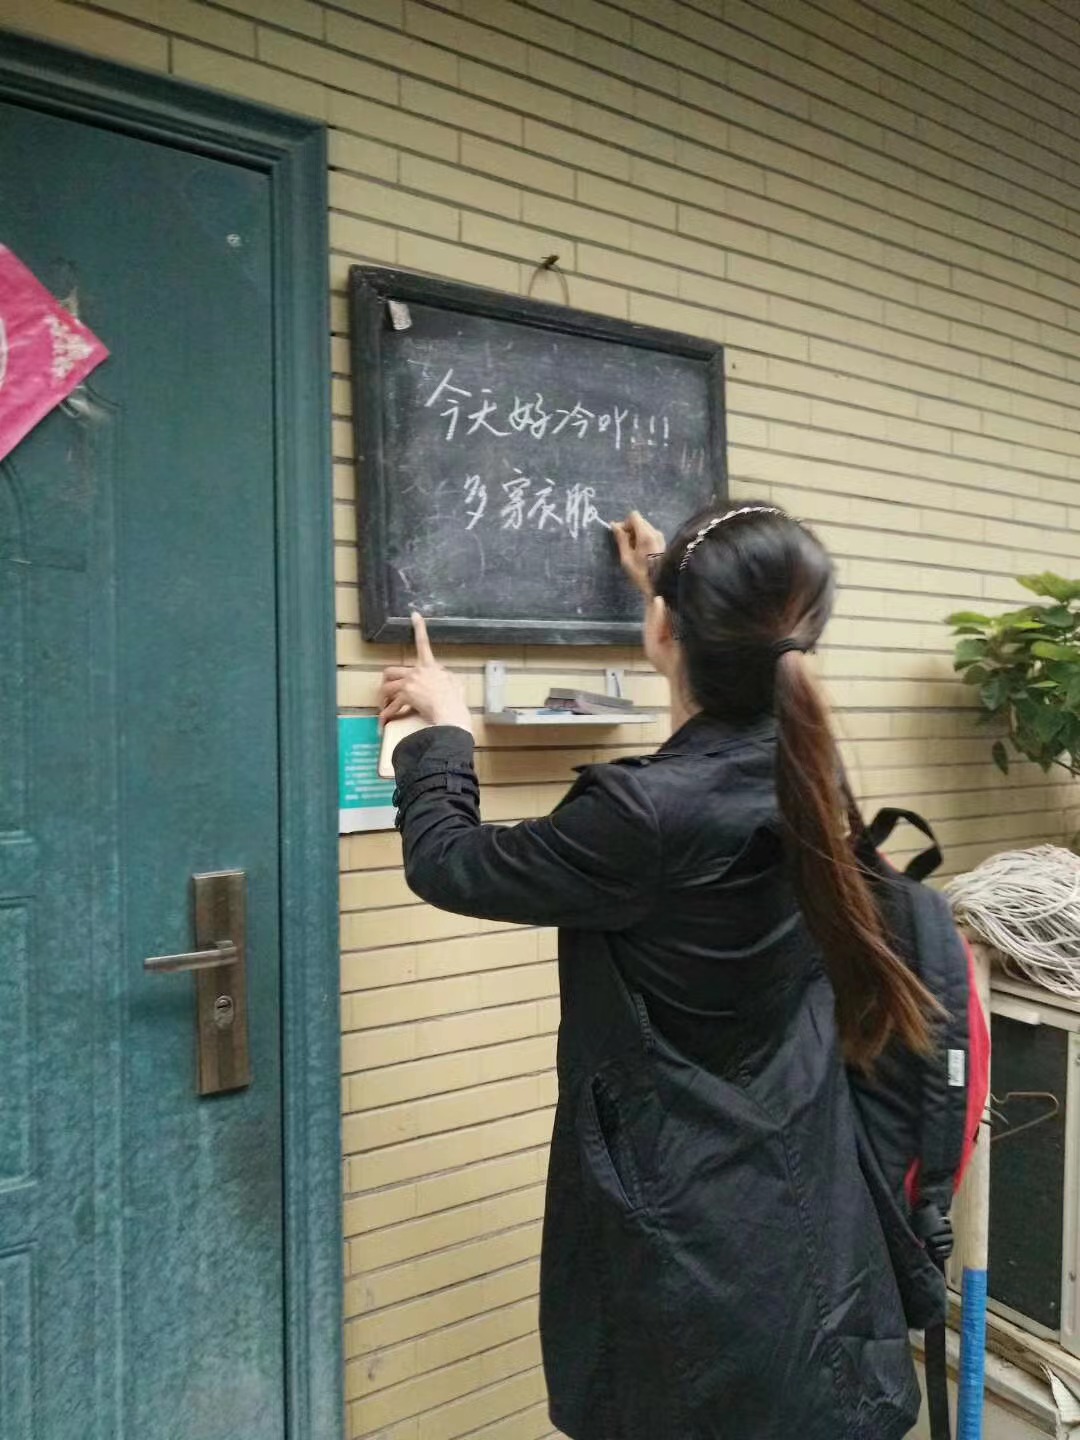 今天好冷吖!!!
多穿衣服